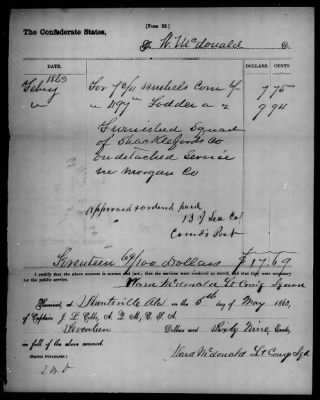 [Form 22.]
The Confederate States,
To W. McDonald Dr.
DATE. DOLLARS. CENTS.
1863
Feby For 7 3/4 bushels Corn 7 75
" " 497 lbs Fodder a 2 9 94
Furnished Squad
of Shackelfords Co
on detached Service
in Morgan Co
Approved & ordered paid
Comd'g Post
Seventeen 69/100 Dollars $17.69
I certify that the above account is correct and just, that the services were rendered as stated, and that they were necessary
for the public service.
Ward McDonald Lt Comg Squad
Received, at Huntsville Ala on the 5th day of May 1863,
of Captain J. L. Cobbs, A. Q. M., C. S. A.
Seventeen Dollars and Sixty Nine Cents,
in full of the above account.
[SIGNED DUPLICATES.]
Ward McDonald Lt Comg Sqd